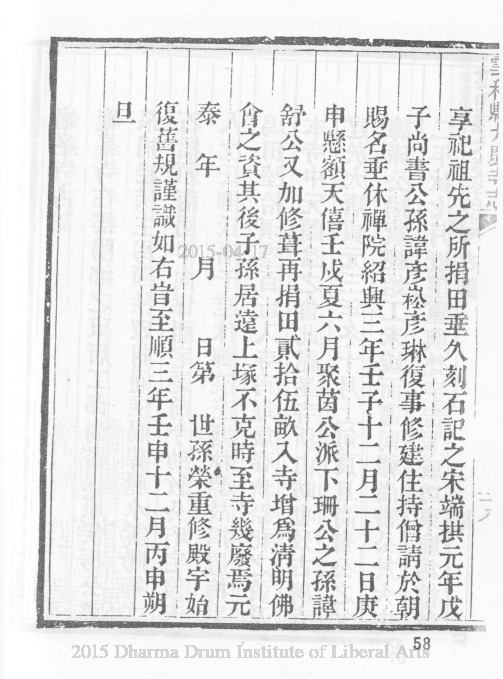 享祀祖先之所捐田垂久刻石記之宋端拱元年戊
子尚書公孫諱彥崧彥琳復事修建住持僧請於朝
賜名垂休禪院紹興三年壬子十二月二十二日庚
申懸額天僖壬戌夏六月聚茵公派下珊公之孫諱
舒公又加修葺再捐田貳拾伍畝入寺增爲清明佛
會之資其後子孫居遠上塚不克時至寺幾廢焉元
泰年 月 日第 世孫榮重修殿宇始
復舊規謹識如右旹至順三年壬申十二月丙申朔
旦
2015-04-17
58
2015 Dharma Drum Institute of Liberal Arts